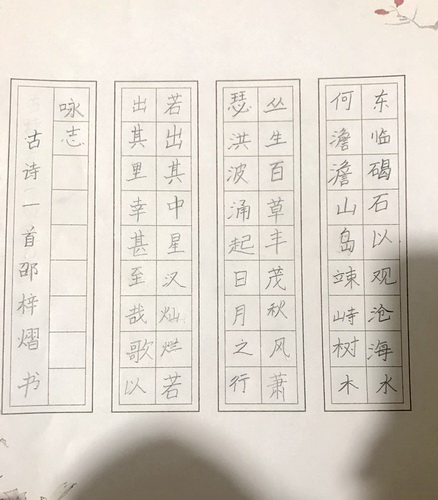 东临碣石以观沧海水
何澹澹山岛竦峙树木
丛生百草丰茂秋风萧
瑟洪波涌起日月之行
若出其中星汉灿烂若
出其里幸甚至哉歌以
咏志
古诗一首邵梓熠书